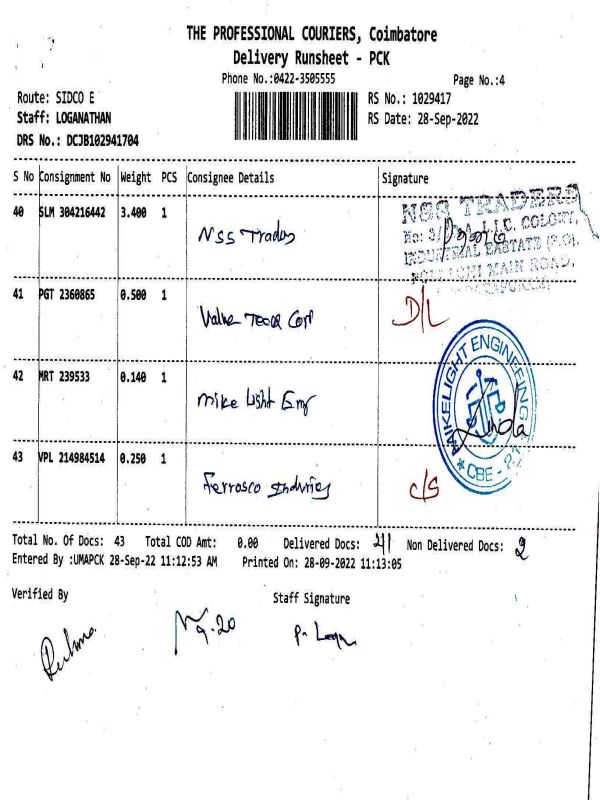 THE PROFESSIONAL COURIERS, Coimbatore
Delivery Runsheet - PCK
Phone No.:0422-3505555 Page No.:4
Route: SIDCO E RS No.: 1029417
Staff: LOGANATHAN RS Date: 28-Sep-2022
DRS No.: DCJB102941704
S No Consignment No Weight PCS Consignee Details Signature
40 SLM 304216442 3.400 1 NSS Traders
NSS TRADERS
INDUSTRIAL EASTATE (P.O),
MAIN ROAD,
41 PGT 2360865 0.500 1 Value Corp D/L
42 MRT 239533 0.140 1 Mike Light Eng
MIKELIGHT ENGINEERING
CBE - 21
43 VPL 214984514 0.250 1 Ferrosco c/s
Total No. Of Docs: 43 Total COD Amt: 0.00 Delivered Docs: 41 Non Delivered Docs: 2
Entered By :UMAPCK 28-Sep-22 11:12:53 AM Printed On: 28-09-2022 11:13:05
Verified By Staff Signature
9.20